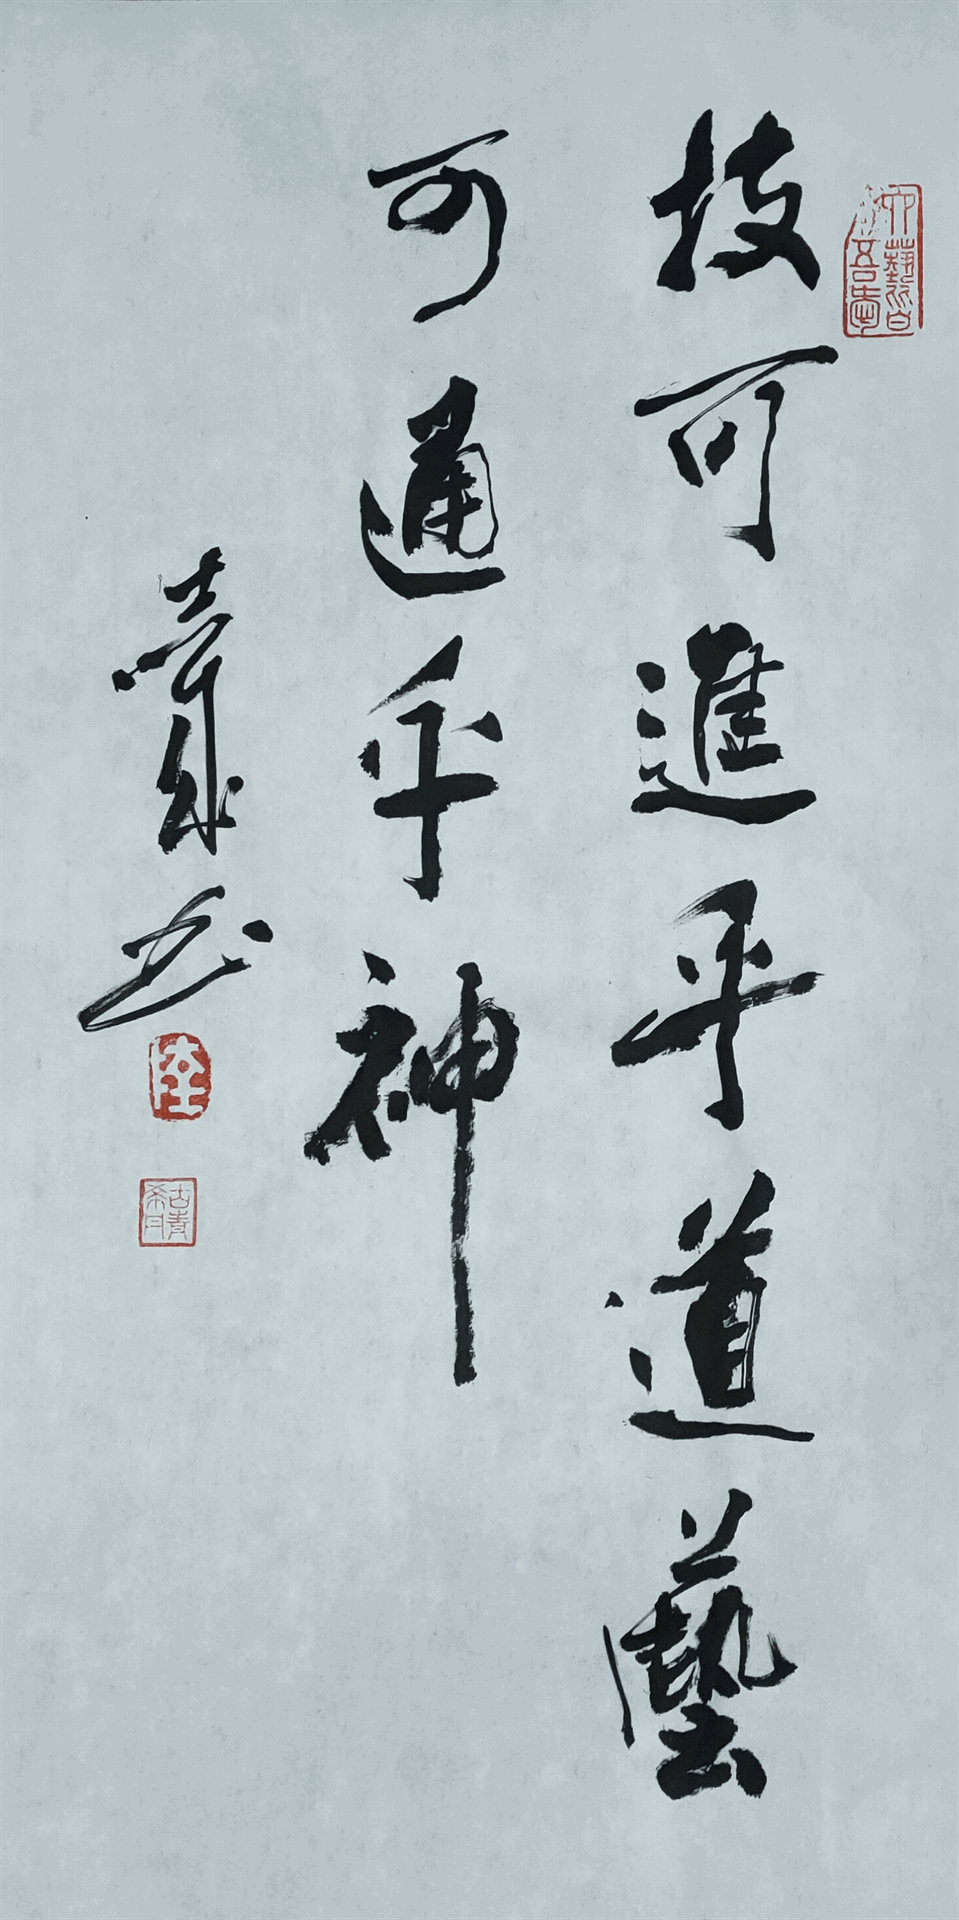 技可進乎道藝
可通乎神